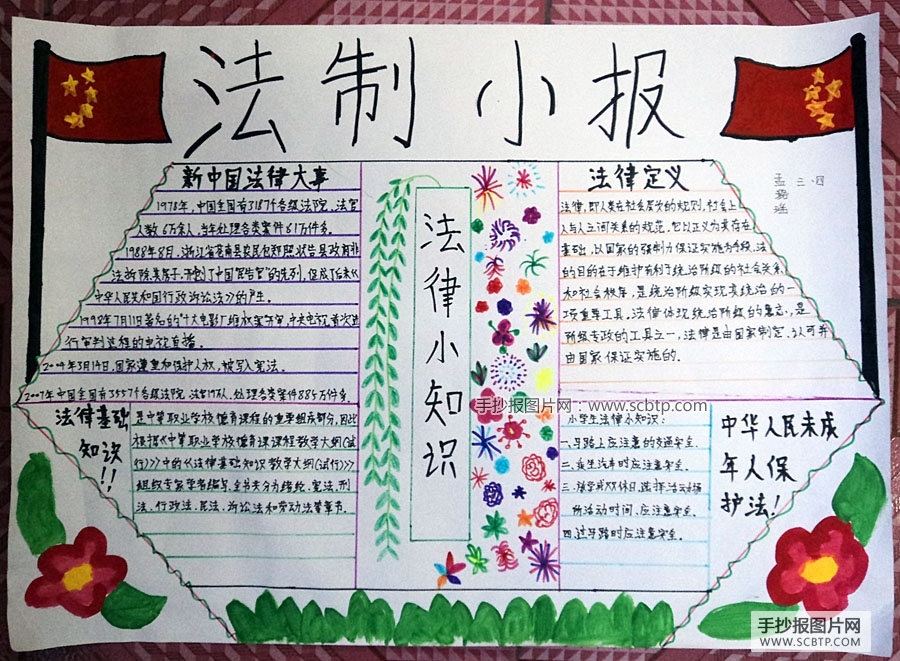 法制小报
三.四
新中国法律大事
1978年,中国全国有3187个各级法院,法官
人数6万余人,当年处理各类案件61万件多。
1988年8月,浙江省苍南县农民包郑照状告县政府非
法拆除其房子,开创了中国"民告官"的先列,促成了后来《
中华人民共和国行政诉讼法》的产生。
1998年7月11日著名的"十大电影厂维权案"开审,中央电视首次进
行审判过程的电视直播。
2004年3月14日,国家尊重和保护人权,被写入宪法。
2007年中国全国有3557个各级法院,法官19万人,处理各类案件885万件多。
法律小知识
法律定义
法律,即人类在社会层次的规则,社会上
人与人之间关系的规范,它以正义为其存在
基础,以国家的强制力保证实施为手段,法
的目的在于维护有利于统治阶级的社会关系
和社会秩序,是统治阶级实现其统治的一
项重要工具,法律体现统治阶级的意志,是
阶级专政的工具之一,法律是由国家制定、认可并
由国家保证实施的.
法律基础
知识!!
是中等职业学校德育课程的重要组成部分,因此
根据《中等职业学校德育课课程教学大纲(试
行)》中的《法律基础知识教学大纲(试行)》
组织专家学者编写,全书共分为绪论、宪法、刑
法、行政法、民法、诉讼法和劳动法等章节.
手抄报图片网:www.scbtp.com
小学生法律小知识:
一.马路上应注意的交通安全.
二.乘坐汽车时应注意安全.
三.放学或双休日,选择活动场
所活动时间,应注意安全.
四.过马路时应注意安全.
中华人民未成
年人保
护法!
手抄报图片网
WWW.SCBTP.COM